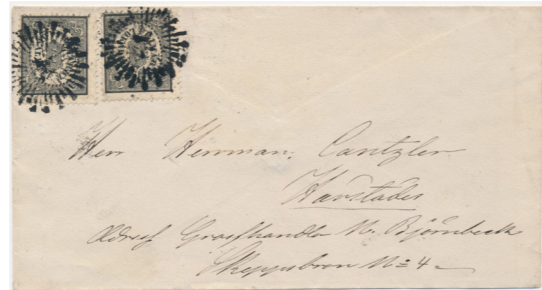 Herr Herrman Cantzler
Adress Grosshandlr N. Björnbeck
Skeppsbron N= 4